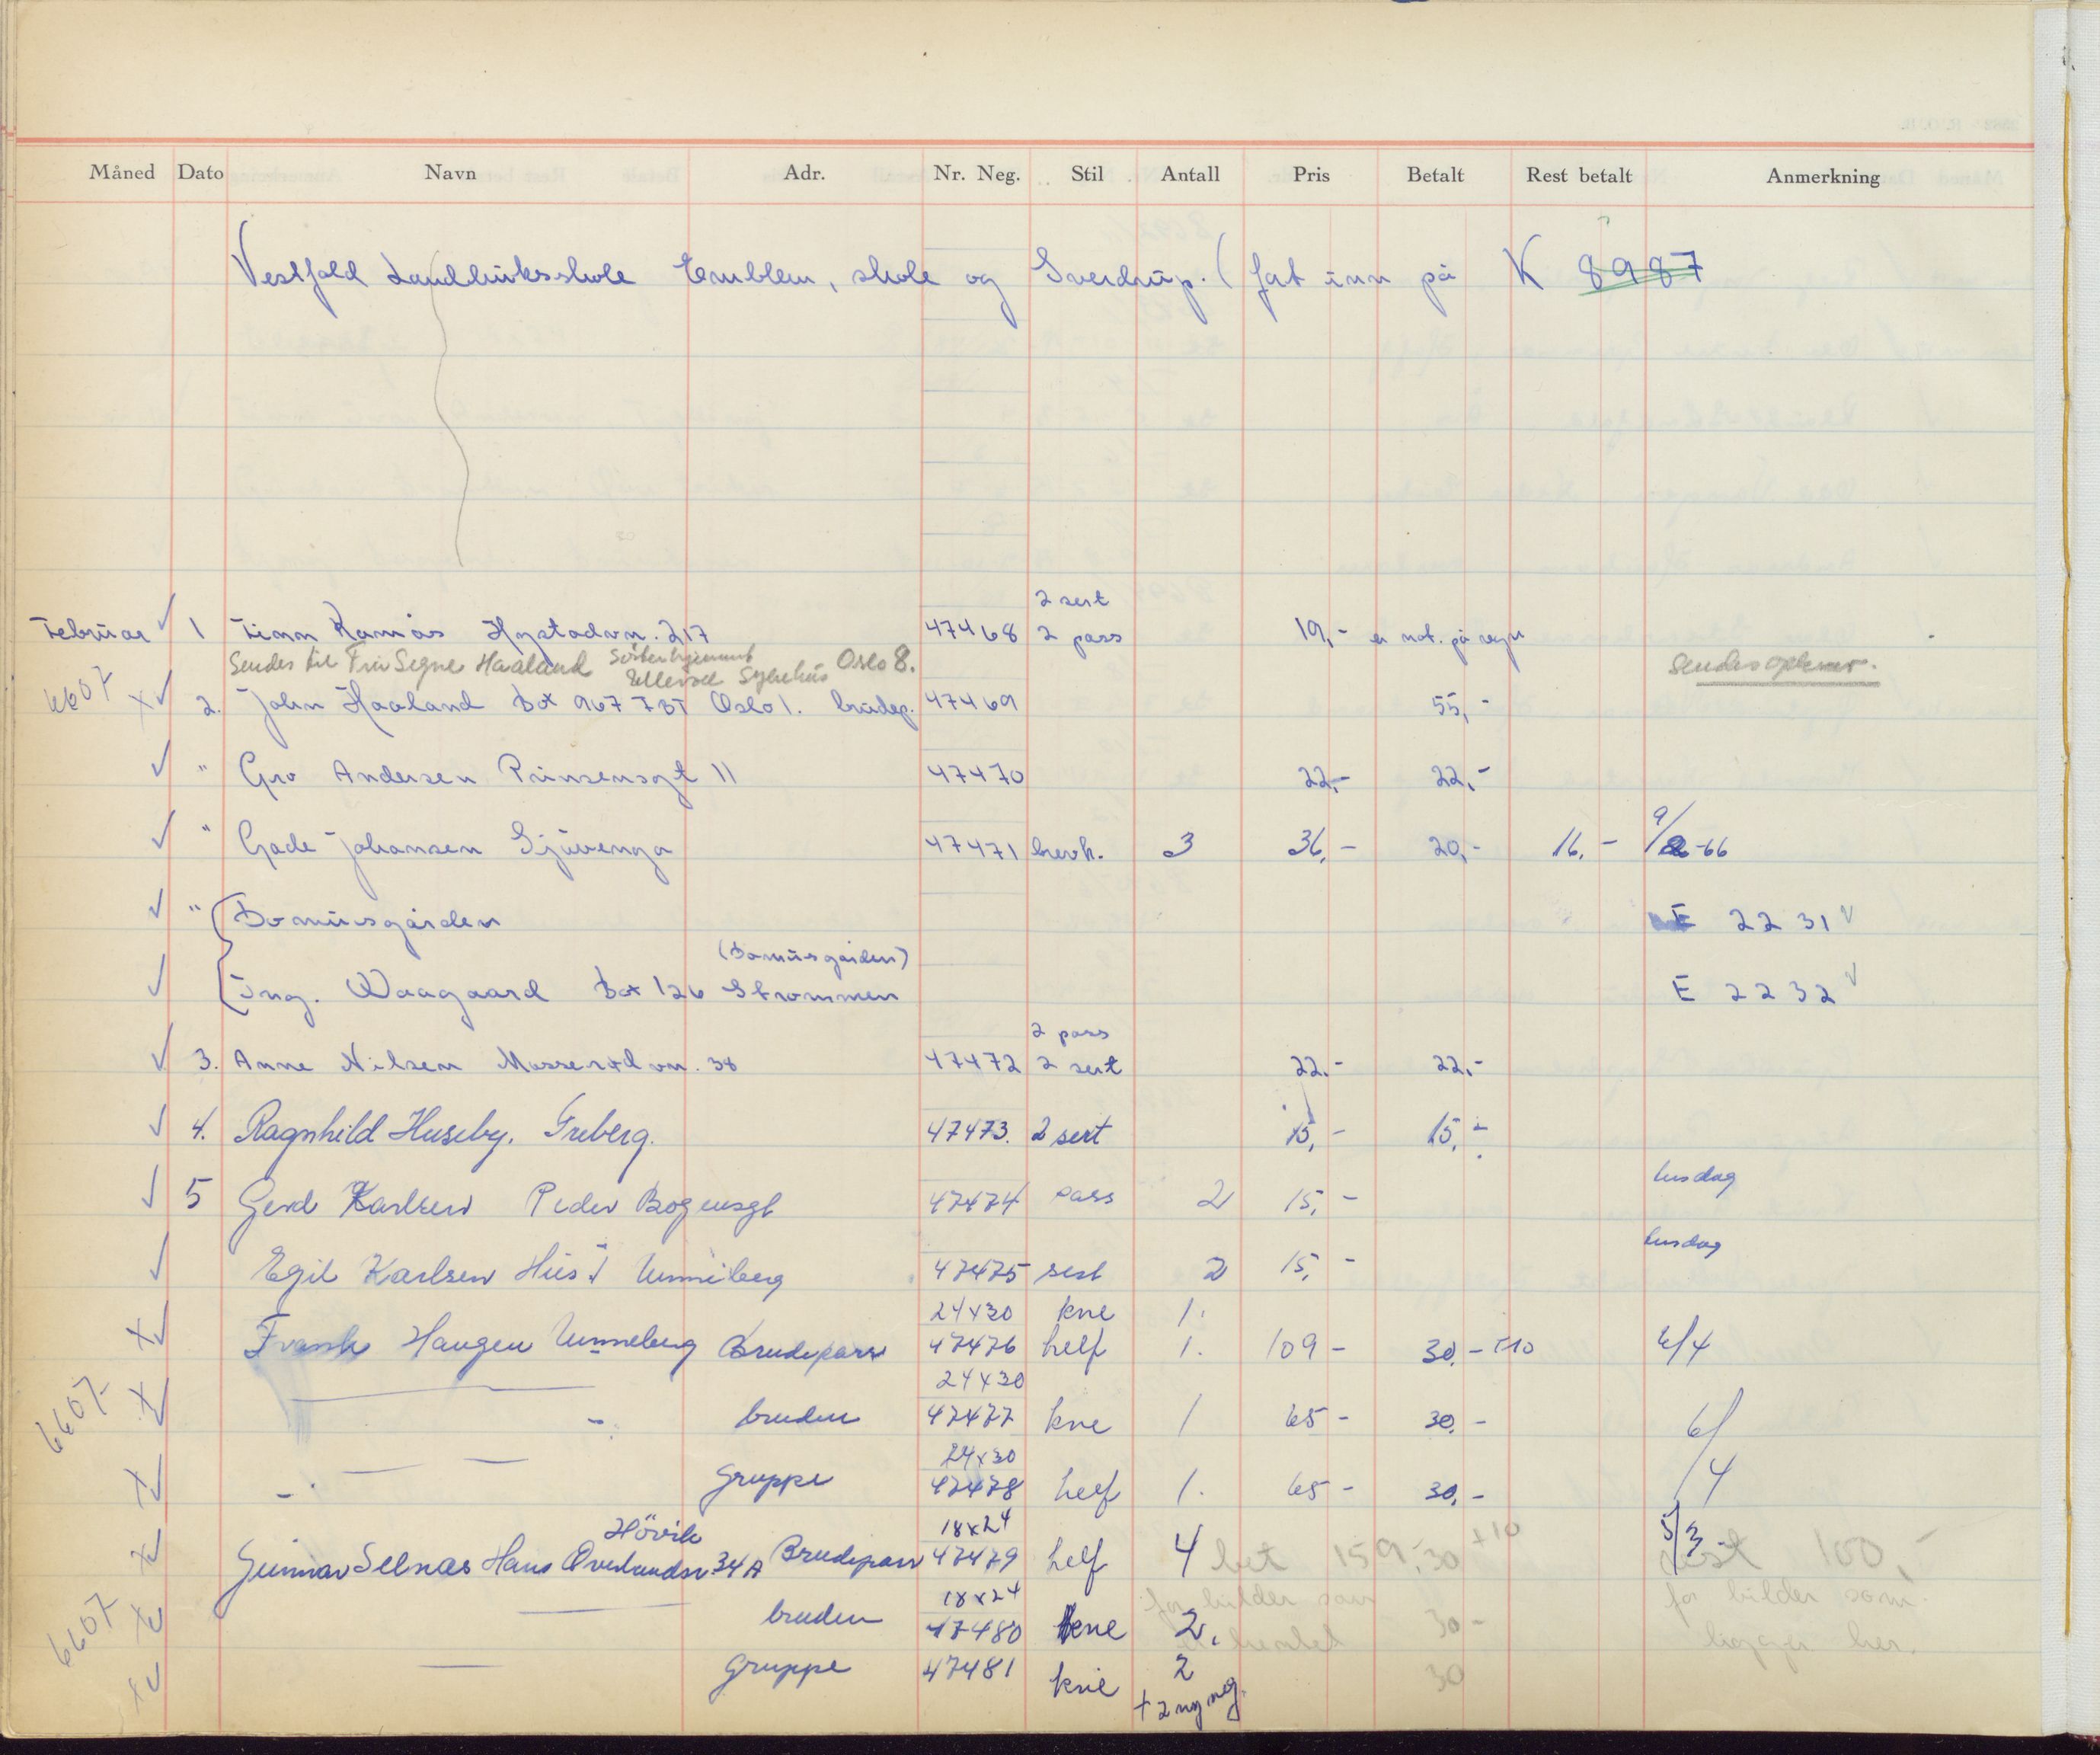 Måned Dato Navn Adr. Nr. Neg. Stil Antall Pris Betalt Rest betalt Anmerkning
Vestfold Landbruksskole Emblem, skole og Sverdrup. ( ført inn på K 8987
2 sert
Februar ✓ 1 Finn Ramås Hystadvn. 217 47468 2 pass 19,- er not. på regn
Sendes til Frü Signe Haaland Søsterhjemmet Oslo 8.
Ullevål Sykehus
6607 x✓ 2. John Haaland Box 967 Oslo 1. brudep. 47469 55,-
✓ " Gro Andersen Prinsensgt 11 47470 22,- 22,-
✓ " Gade Johansen 47471 brevk. 3 36,- 20,- 16,- 9/2-66
✓ " Domusgården E 2231 ✓
(Domusgården)
✓ Ing. Waagaard Box 126 Strømmen E 2232 ✓
2 pass
✓ 3. Anne Nilsen Mosserødvn. 38 47472 2 sert 22,- 22,-
✓ 4. Ragnhild Huseby. Freberg. 47473. 2 sert 15,- 15,-
tirsdag
✓ 5 Gerd Karlsen Peder Bogensgt 47474 pass 2 15,-
tirsdag
✓ Egil Karlsen Unneberg 47475 sert 2 15,-
24x30 kne 1.
x✓ Frank Haugen Unneberg Brudepar 47476 helf 1. 109 - 30,- +10 6/4
24x30
6607 x✓ - " - bruden 47477 kne 1 65 - 30,- 6/4
24x30
x✓ - " - gruppe 47478 helf 1. 65 - 30,-
Hövik 18x24 +10 5/3
x✓ Gunnar Selnæs Hans Øverlandsv. 34A Brudepar 47479 helf 4 bet 159,- 30 rest 100,-
18x24 for bilder som for bilder som
6607 x✓ bruden 47480 kne 2. er hentet 30 - ligger her.
x✓ gruppe 47481 kne 2 30
+ 2 ny neg.